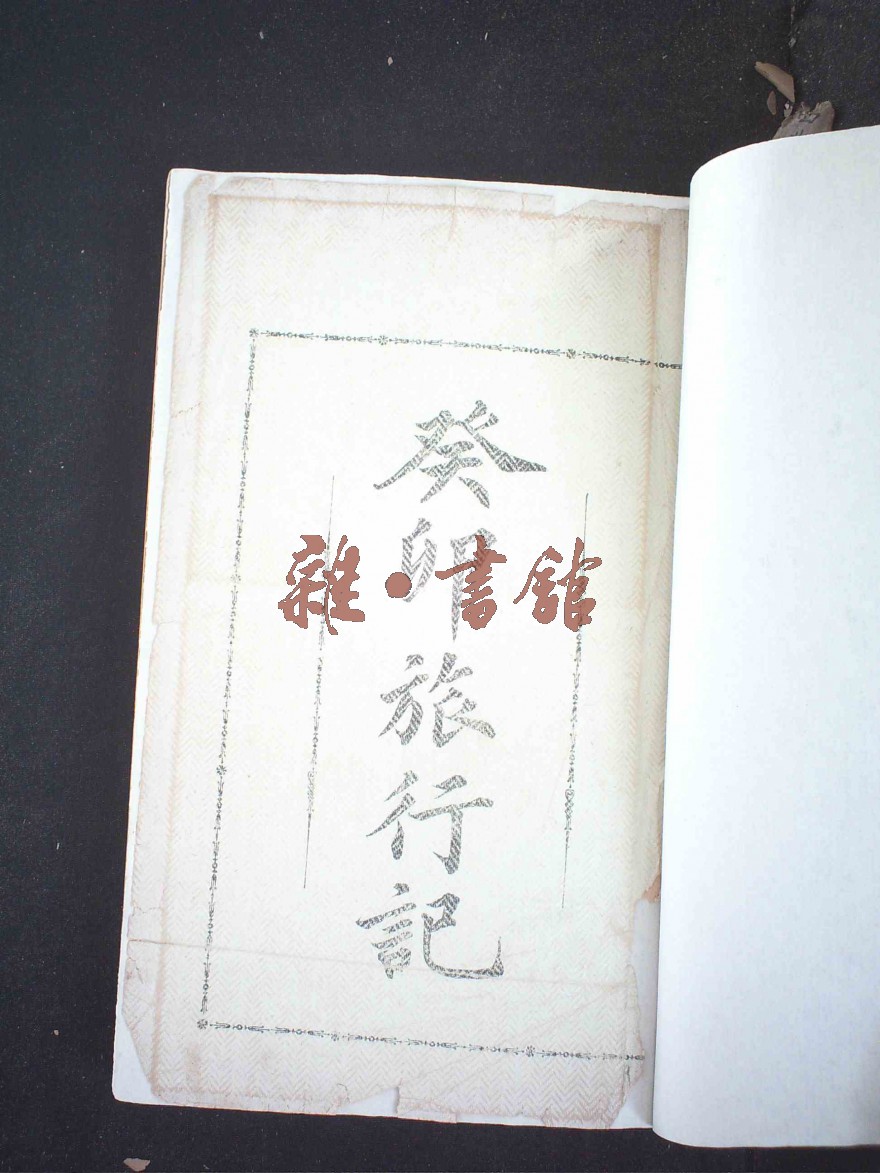 癸卯旅行記
雜·書館